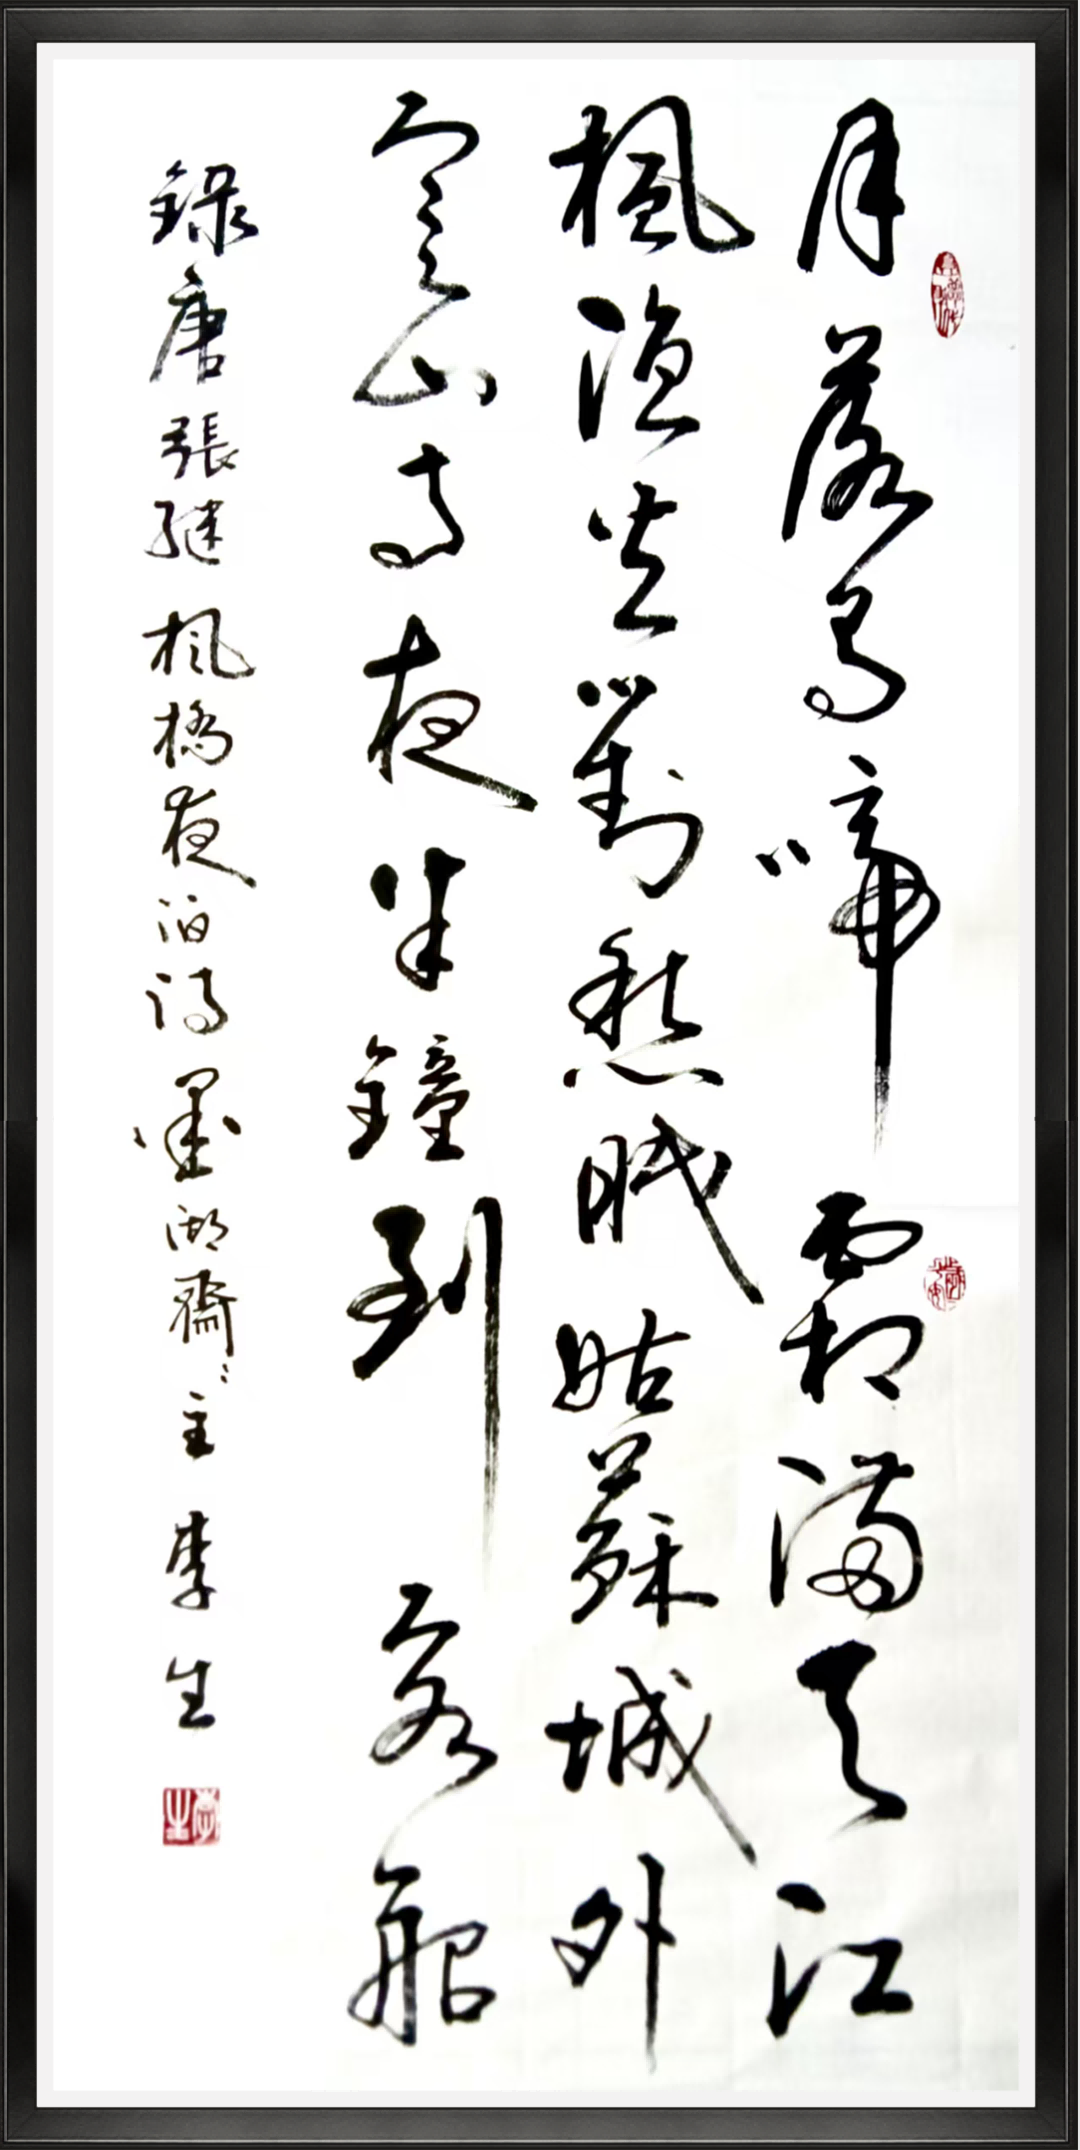 月落烏啼霜滿天江
楓漁火對愁眠姑蘇城外
寒山寺夜半鐘到客船
錄唐張繼楓橋夜泊詩墨湖齋主李生
李生